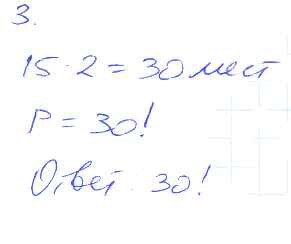 3.
15·2 = 30 мест
P = 30!
Ответ. 30!